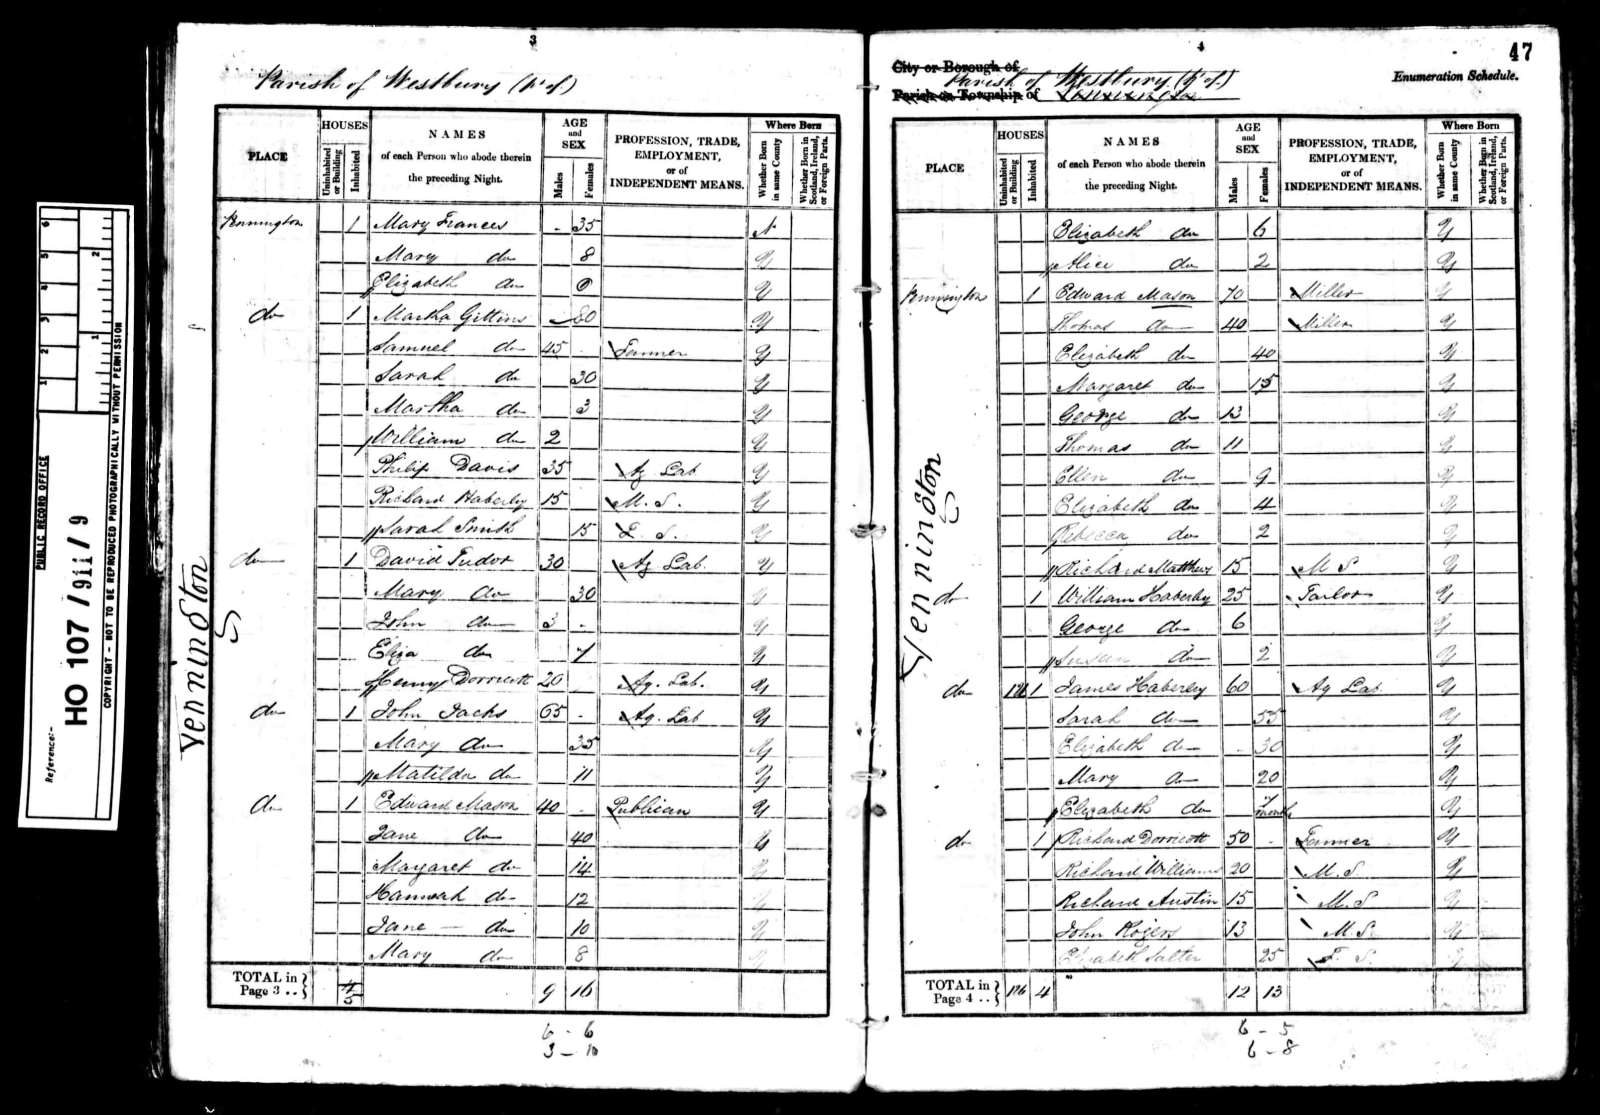 3
Parish of Westbury (pt of)
PLACE
HOUSES
Uninhabited or Building
Inhabited
NAMES of each Person who abode therein the preceding Night.
AGE and SEX
Males
Females
PROFESSION, TRADE, EMPLOYMENT, or of INDEPENDENT MEANS.
Where Born
Whether Born in same County
Whether Born in Scotland, Ireland, or Foreign Parts.
Yennington 1 Mary Frances - 35 N
Mary do 8 Y
Elizabeth do 6 Y
do 1 Martha Gittins 80 Y
Samuel do 45 - Farmer Y
Sarah do 30 Y
Martha do 3 Y
William do 2 Y
Philip Davis 35 Ag Lab Y
Richard Haberley 15 M. S. Y
Sarah Smith 15 F. S. Y
do 1 David Tudor 30 Ag Lab. Y
Mary do 30 Y
John do 3 - Y
Eliza do 7 Y
Henry Dorricott 20 Ag. Lab. Y
do 1 John Jacks 65 - Ag. Lab Y
Mary do 35 Y
Matilda do 11 Y
do 1 Edward Mason 40 - Publican Y
Jane do 40 Y
Margaret do 14 Y
Hannah do 12 Y
Jane do 10 Y
Mary do 8 Y
TOTAL in Page 3 .. 4 5 9 16
6 - 6
3 - 10
Yennington
4
47
City or Borough of
Parish of Westbury (pt of)
Enumeration Schedule.
Parish or Township of
PLACE
HOUSES
Uninhabited or Building
Inhabited
NAMES of each Person who abode therein the preceding Night.
AGE and SEX
Males
Females
PROFESSION, TRADE, EMPLOYMENT, or of INDEPENDENT MEANS.
Where Born
Whether Born in same County
Whether Born in Scotland, Ireland, or Foreign Parts.
Elizabeth do 6 Y
Alice do 2 Y
Yennington 1 Edward Mason 70 Miller Y
Thomas do 40 Miller Y
Elizabeth do 40 Y
Margaret do 15 Y
George do 13 Y
Thomas do 11 Y
Ellen do 9 Y
Elizabeth do 4 Y
Rebecca do 2 Y
Richard Matthews 15 M S Y
do 1 William Haberley 25 Tailor Y
George do 6 Y
Susan do 2 Y
do 1 James Haberley 60 Ag Lab Y
Sarah do 55 Y
Elizabeth do - 30 Y
Mary do 20 Y
Elizabeth do 7 months Y
do 1 Richard Dorricott 50 - Farmer Y
Richard Williams 20 M. S Y
Richard Austin 15 M. S Y
John Rogers 13 M. S. Y
Elizabeth Salter 25 F. S. Y
TOTAL in Page 4 .. 4 12 13
6 - 5
6 - 8
Yennington
PUBLIC RECORD OFFICE
1 2 3 4 5 6
1 2
Reference:-
HO 107 / 911 / 9
COPYRIGHT - NOT TO BE REPRODUCED PHOTOGRAPHICALLY WITHOUT PERMISSION